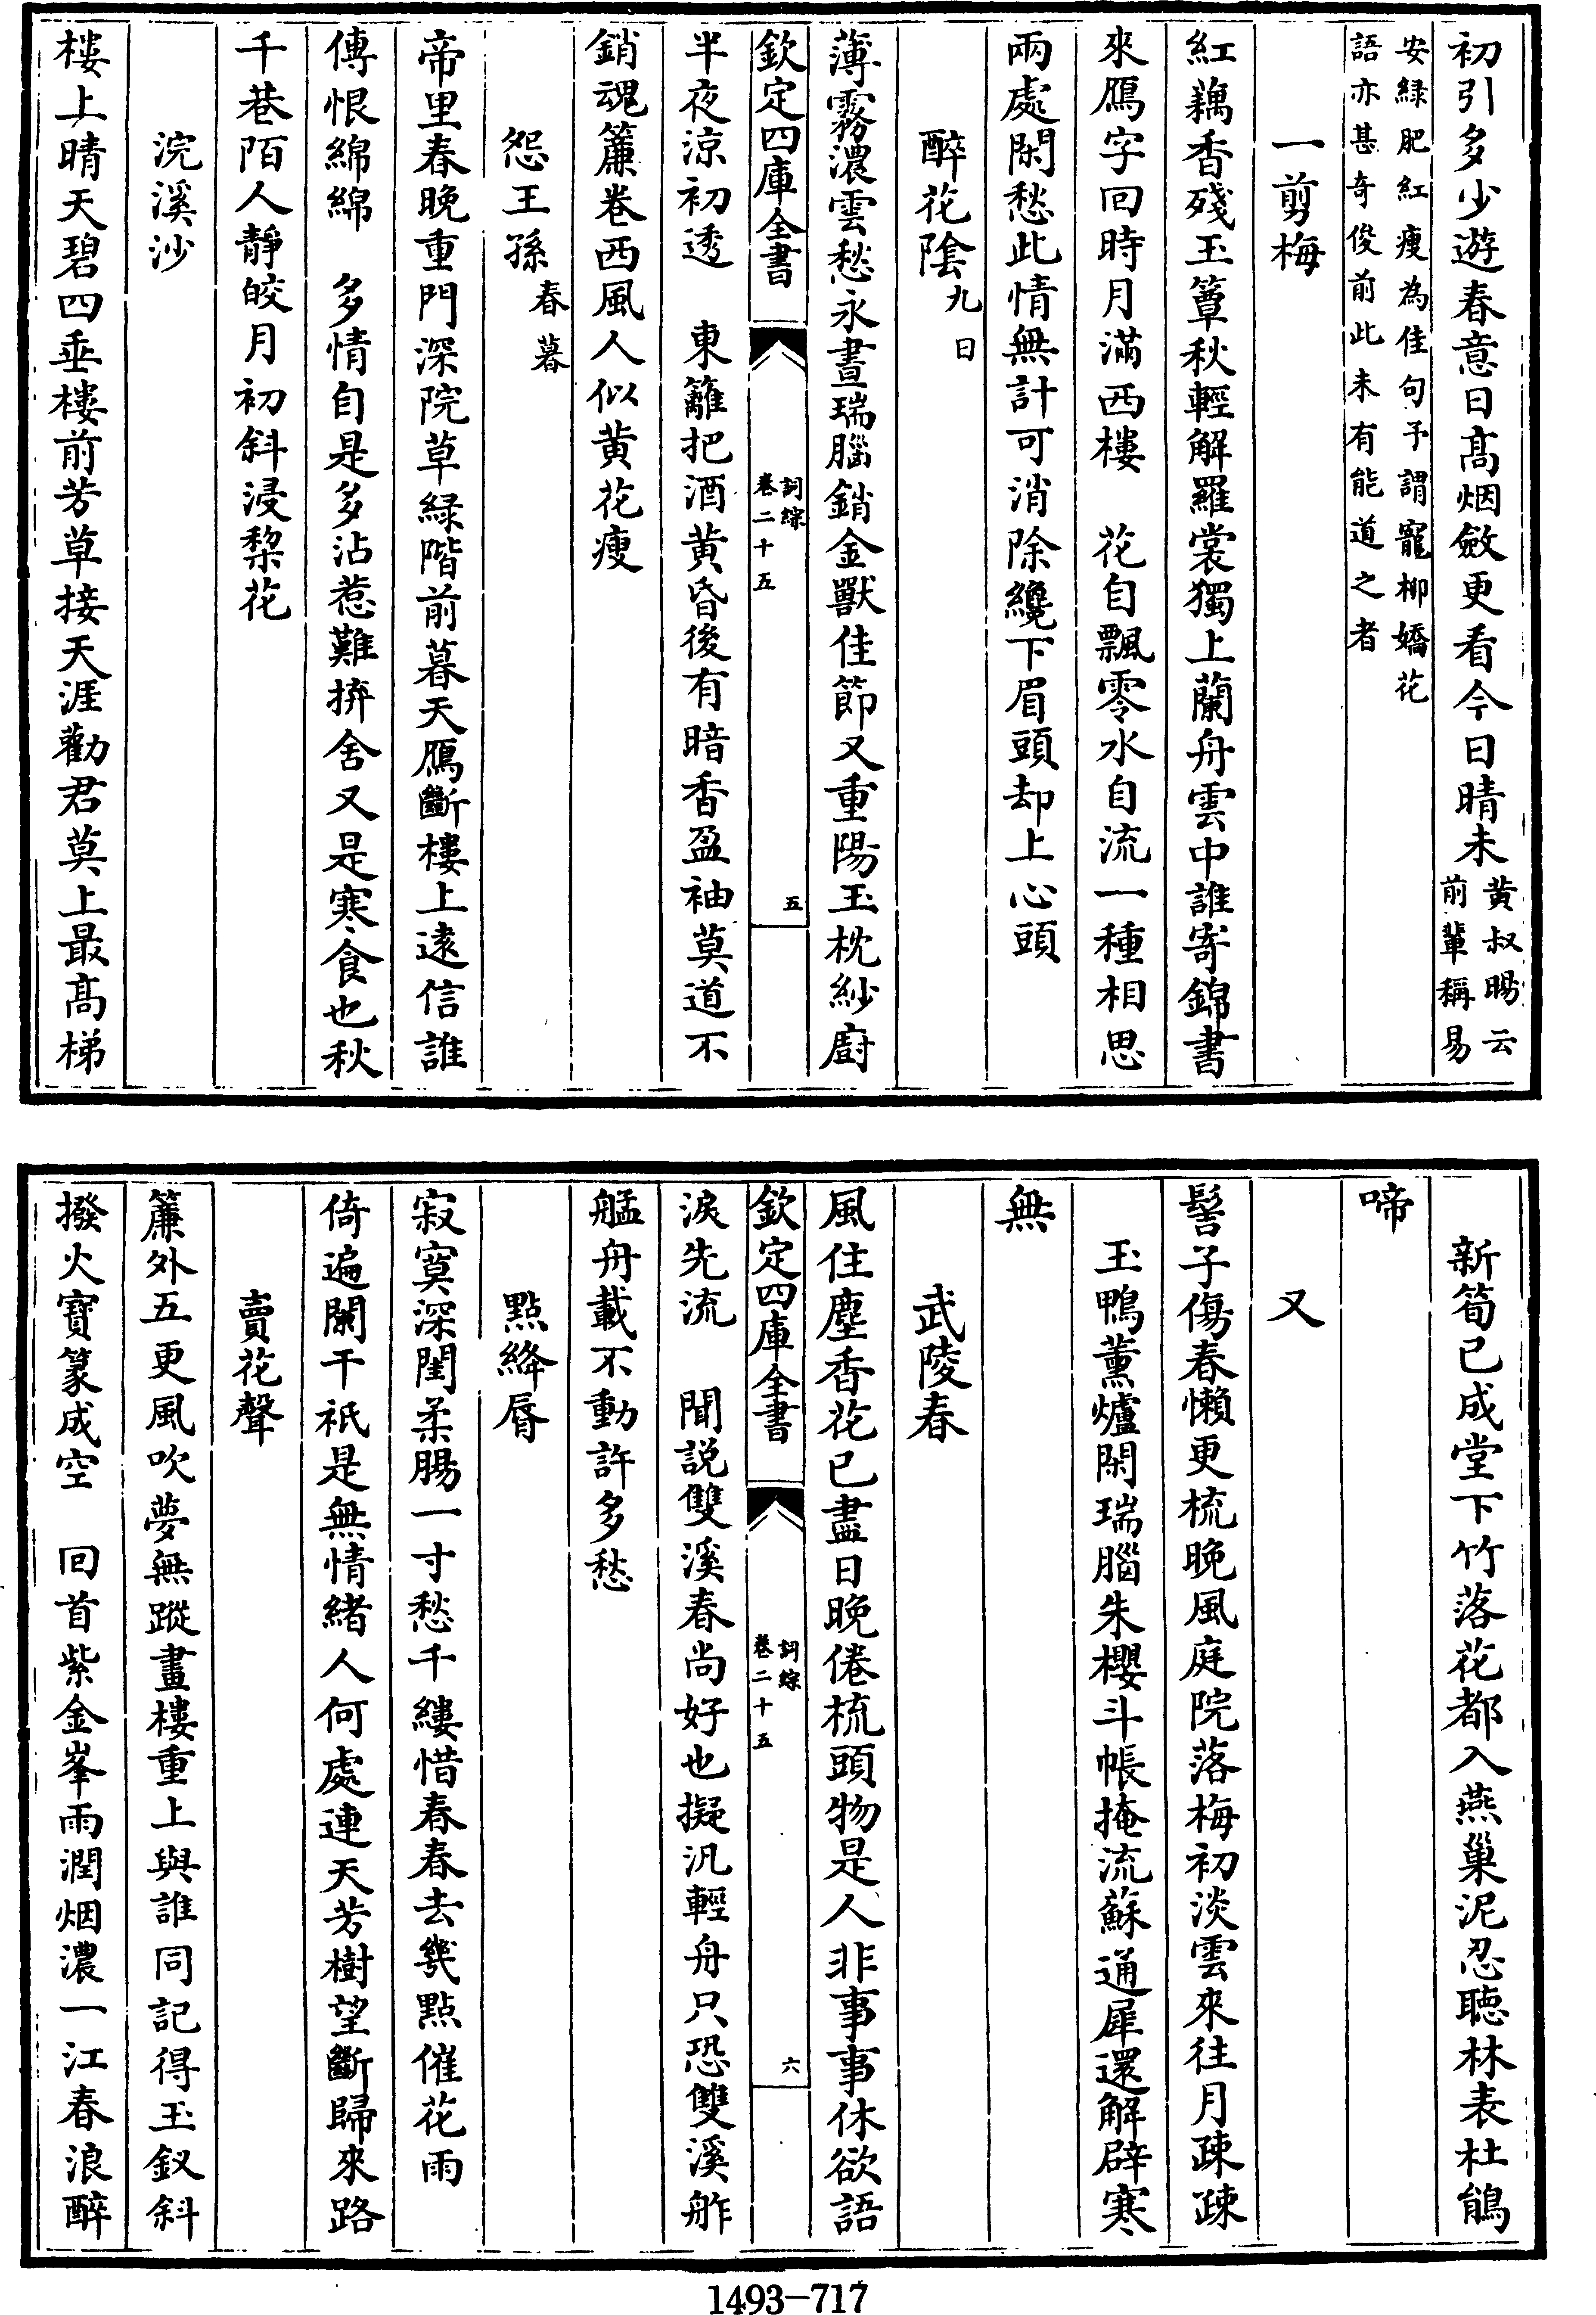 初引多少遊春意日髙烟斂更看今日晴未黄叔暘云前輩稱易
安緑肥紅瘦為佳句予謂寵柳嬌花
語亦甚奇俊前此未有能道之者
一剪梅
紅藕香殘玉簟秋輕解羅裳獨上蘭舟雲中誰寄錦書
來鴈字回時月滿西樓　花自飄零水自流一種相思
兩處閑愁此情無計可消除纔下眉頭却上心頭
醉花陰九日
薄霧濃雲愁永晝瑞腦銷金獸佳節又重陽玉枕紗廚
欽定四庫全書　詞綜卷二十五　五
半夜涼初透　東籬把酒黄昏後有暗香盈袖莫道不
銷魂簾巻西風人似黄花瘦
怨王孫春暮
帝里春晩重門深院草緑階前暮天鴈斷樓上逺信誰
傳恨綿綿　多情自是多沾惹難拚舍又是寒食也秋
千巷陌人靜皎月初斜浸棃花
浣溪沙
樓上晴天碧四垂樓前芳草接天涯勸君莫上最髙梯
新筍已成堂下竹落花都入燕巢泥忍聴林表杜鵑
啼
又
髻子傷春懶更梳晩風庭院落梅初淡雲來往月疎疎
玉鴨薰爐閑瑞腦朱櫻斗帳掩流蘇通犀還解辟寒
無
武陵春
風住塵香花已盡日晩倦梳頭物是人非事事休欲語
欽定四庫全書　詞綜卷二十五　六
淚先流　聞説雙溪春尚好也擬汎輕舟只恐雙溪舴
艋舟載不動許多愁
點絳脣
寂寞深閨柔腸一寸愁千縷惜春春去幾點催花雨
倚遍闌干秖是無情緒人何處連天芳樹望斷歸來路
賣花聲
簾外五更風吹夢無蹤畫樓重上與誰同記得玉釵斜
撥火寶篆成空　回首紫金峯雨潤烟濃一江春浪醉
1493—717